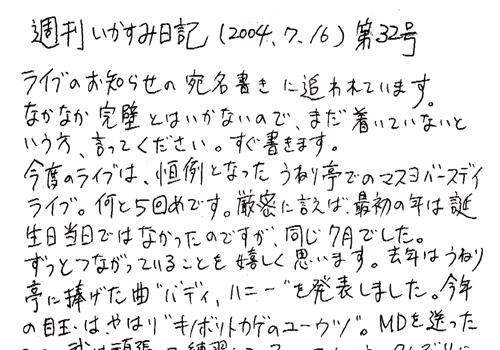 週刊いかすみ日記 (2004.7.16) 第32号
ライブのお知らせの宛名書きに追われています。
なかなか完璧とはいかないので、まだ着いていないと
いう方、言ってください。すぐ書きます。
今度のライブは、恒例となったうねり亭でのマスヨバースデイ
ライブ。何と5回めです。厳密に言えば、最初の年は誕
生日当日ではなかったのですが、同じ7月でした。
ずっとつながっていることを嬉しく思います。去年はうねり
亭に捧げた曲"バディ、ハニー"を発表しました。今年
の目玉はやはり"キノボリトカゲのユーウツ"。MDを送った